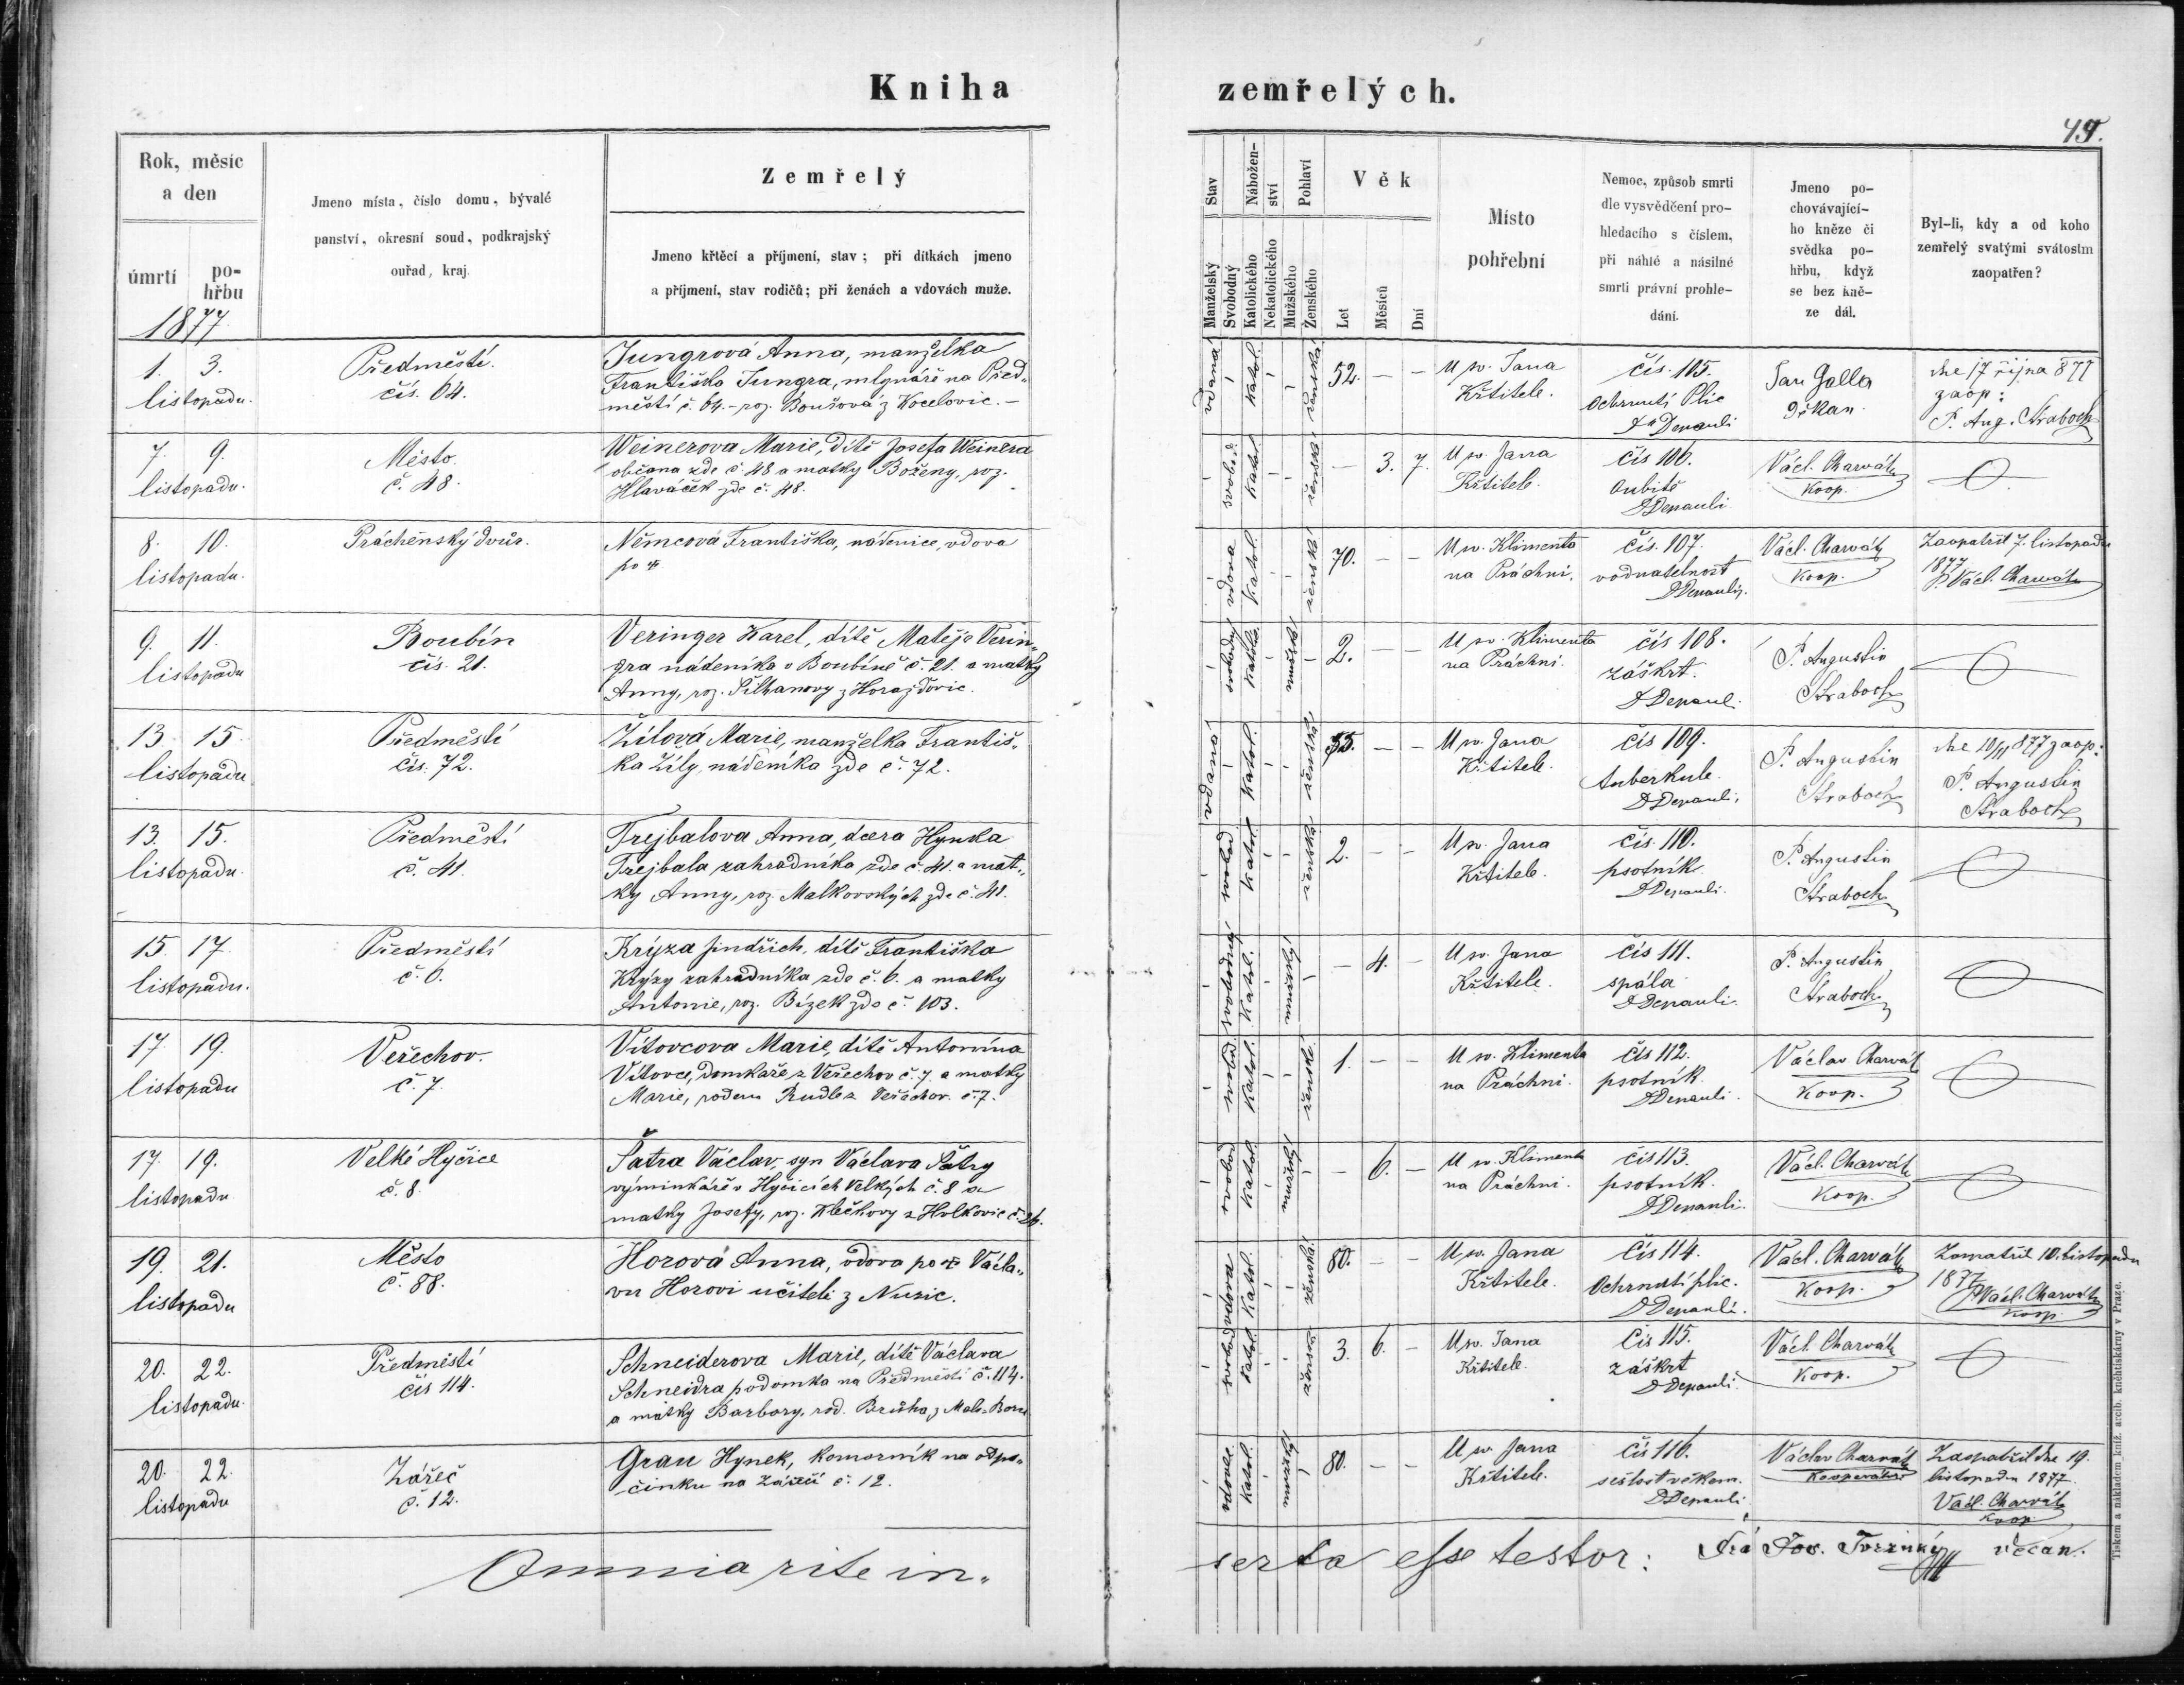 Kniha zemřelých.
49.
Rok, měsíc a den
úmrtí
pohřbu
1877
Jmeno místa, číslo domu, bývalé
panství, okresní soud, podkrajský
ouřad, kraj.
Zemřelý
Jmeno křtěcí a příjmení, stav; při dítkách jmeno
a příjmení, stav rodičů; při ženách a vdovách muže.
Stav
Manželský
Svobodný
Nábožen-
ství
Katolického
Nekatolického
Pohlaví
Mužského
Ženského
Věk
Let
Měsíců
Dní
Místo
pohřební
Nemoc, způsob smrti
dle vysvědčení pro-
hledacího s číslem,
při náhlé a násilné
smrti právní prohle-
dání.
Jmeno po-
chovávající-
ho kněze či
svědka po-
hřbu, když
se bez kně-
ze dál.
Byl-li, kdy a od koho
zemřelý svatými svátostm
zaopatřen?
1. 3.
listopadu.
Předměstí.
čís. 64.
Jungrová Anna, manželka
Františka Jungra, mlynáře na Před-
městí č. 64. - roz. Boušova z Kocelovic. -
vdaná
Katol.
ženská
52. - -
U sv. Jana
Křtitele.
čís. 105.
Ochrnutí Plic
Dr Depauli
Jan Galla
děkan.
dne 17 října 877
zaop:
P. Aug. Straboch
7. 9.
listopadu.
Město.
č. 48.
Weinerova Marie, dítě Josefa Weinera
občana zde č. 48 a matky Boženy, roz.
Hlaváček zde č. 48.
svobod.
Katol.
ženská
- 3. 7.
U sv. Jana
Křtitele.
čís 106.
oubitě
D Depauli
Václ. Charvát
Koop.
8. 10.
listopadu.
Práchěnský dvůr.
Němcová Františka, nádenice, vdova
po
vdova
Katol.
ženská
70. - -
U sv. Klimenta
na Práchni.
čís. 107.
vodnatelnost
D Depauli.
Václ. Charvát
Koop.
Zaopatřil 7. listopadu
1877
P. Václ. Charvát
9. 11.
listopadu
Boubín
čís. 21.
Veringer Karel, dítě Matěje Verin-
gra nádeníka v Boubíně č. 21. a matky
Anny, roz. Šilhanovy z Horažďovic.
svobodný
Katol.
mužské
2. - -
U sv. Klimenta
na Práchni.
čís 108.
záškrt.
D Depaul.
P. Augustin
Straboch
13. 15.
listopadu
Předměstí
čís. 72.
Žílová Marie, manželka Františ-
ka Žíly, nádeníka zde č. 72.
vdaná
Katol.
ženská
55. - -
U sv. Jana
Křtitele.
čís 109.
tuberkule.
D Depauli,
P. Augustin
Straboch
dne 10/11 877 zaop:
P. Augustin
Straboch
13. 15.
listopadu.
Předměstí
č. 41.
Trejbalova Anna, dcera Hynka
Trejbala zahradníka zde č. 41. a mat-
ky Anny, roz. Malkovských zde č. 41.
svobod.
Katol.
ženská
2. - -
U sv. Jana
Křtitele.
čís. 110.
psotník
D Depauli.
P. Augustin
Straboch
15. 17.
listopadu.
Předměstí
č. 6.
Krýza Jindřich, dítě Františka
Krýzy zahradníka zde č. 6. a matky
Antonie, roz. Bízek zde č. 103.
svobodný
Katol.
mužský
- 4. -
U sv. Jana
Křtitele.
čís 111.
spála
D Depauli.
P. Augustin
Straboch
17. 19.
listopadu
Veřechov.
č. 7.
Vítovcova Marie, dítě Antonína
Vítovce, domkaře z Veřechov č. 7. a matky
Marie, rodem Rudl z Veřechov. č. 7.
svobod.
Katol.
ženská
1. - -
U sv. Klimenta
na Práchni.
čís 112.
psotník.
D Depauli.
Václav Charvát
Koop.
17. 19.
listopadu
Velké Hyčice
č. 8.
Šatra Václav, syn Václava Šatry
výminkáře v Hyčicích Velkých č. 8 a
matky Josefy, roz. Klečkovy z Holkovic č. 26.
svobod.
Katol.
mužský
- 6. -
U sv. Klimenta
na Práchni.
čís 113.
psotník.
D Depauli.
Václ. Charvát
Koop.
19. 21.
listopadu
Město
č. 88.
Horová Anna, vdova po Václa-
vu Horovi učiteli z Nuzic.
vdova
Katol.
ženská
80. - -
U sv. Jana
Křtitele.
čís 114.
Ochrnutí plic.
D Depauli.
Václ. Charvát
Koop.
Zaopatřil 10. listopadu
1877
P. Václ. Charvát
Koop.
20. 22.
listopadu.
Předměstí
čís 114.
Schneiderova Marie, dítě Václava
Schneidra podomka na Předměstí č. 114.
a matky Barbory, rod. z Malo-Boru
svobod.
Katol.
ženská
3. 6. -
U sv. Jana
Křtitele.
čís 115.
záškrt
D Depauli.
Václ. Charvát
Koop.
20. 22.
listopadu
Zářeč
č. 12.
Grau Hynek, komorník na odpo-
činku na Zářečí č. 12.
vdovec
Katol.
mužský
80. - -
U sv. Jana
Křtitele.
čís 116.
sešlost věkem.
D Depauli
Václav Charvát
Kooperator
Zaopatřil dne 19.
listopadu 1877.
Václ. Charvát
Koop.
Omnia rite in-
serta esse testor: Jos. děcan.
Tiskem a nákladem kníž. arcib. kněhtiskárny v Praze.